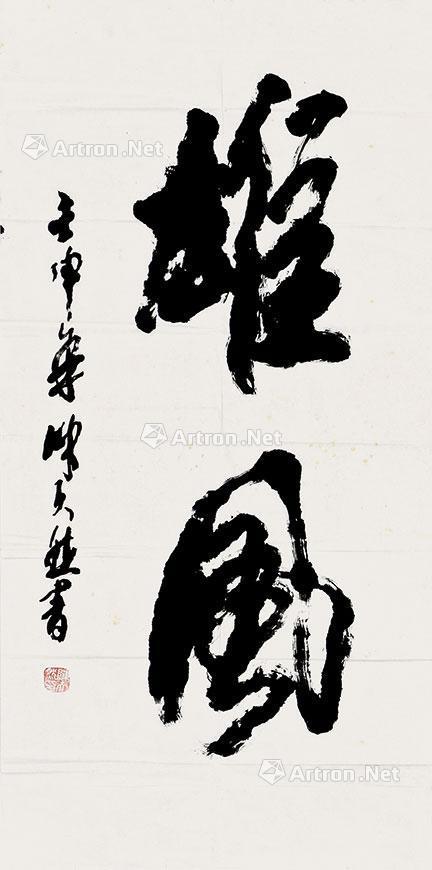 雄風
壬申
陈天然書
Artron.Net
Artron.Net
Artron.Net